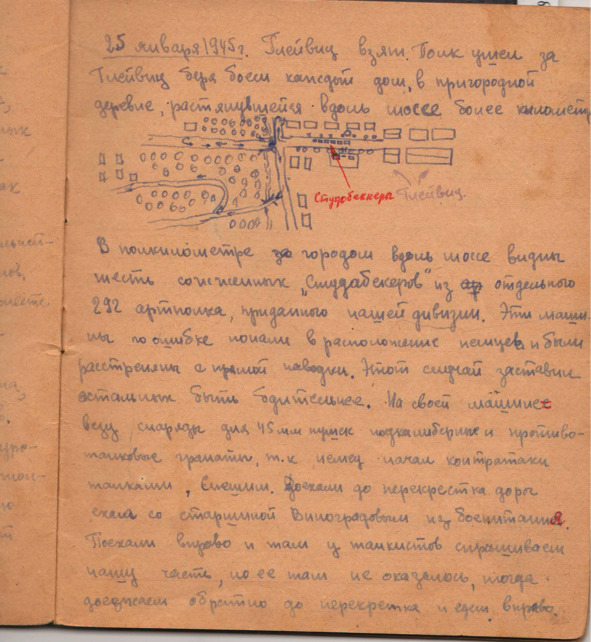 25 января 1945г. Глейвиц взят. Полк ушел за
Глейвиц беря боем каждый дом, в пригородной
деревне, растянувшейся вдоль шоссе более километр
Студобеккера
Глейвиц
В полкилометре за городом вдоль шоссе видны
шесть сожженных „Студабекеров" из отдельного
292 артполка, приданного нашей дивизии. Эти маши-
ны по ошибке попали в расположение немцев и были
расстреляны с прямой наводки. Этот случай заставил
остальных быть бдительнее. На своей машине
везу снаряды для 45мм пушек подкалиберные и противо-
танковые гранаты, т.к немец начал контратаки
танками, спешим. Доехали до перекрестка дорог
ехал со старшиной Виноградовым из боепитания.
Поехали вправо и там у танкистов спрашиваем
нашу часть, но ее там не оказалось, тогда
доезжаем обратно до перекретка и едем вправо.